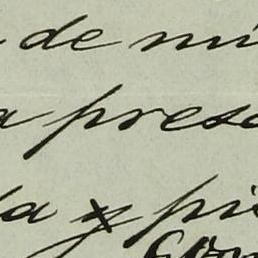 de mi
a prese
la y pi
con